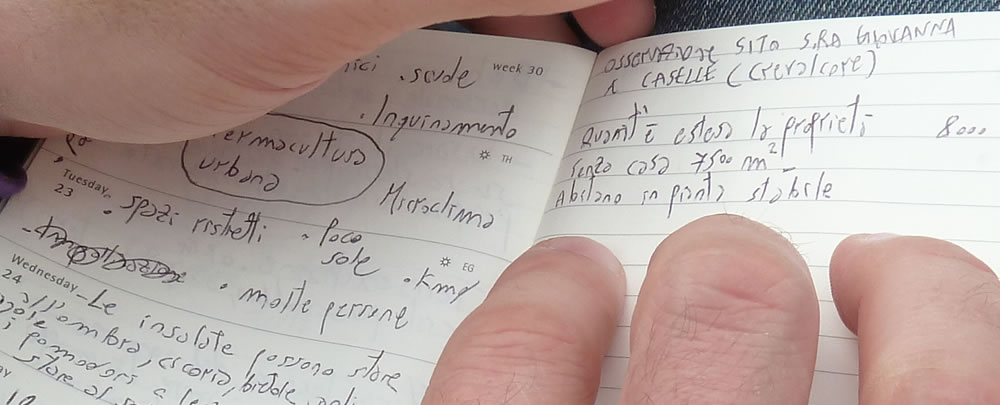 scude
week 30
. Inguinamento
TH
ermacultura
urbana
Microclima
Tuesday
23
. spazi ristretti
. poco
sole
EG
. Km∅
. molte persone
Wednesday
24
- Le insalate possono stare
all'ombra, cicoria, bietole,
pomodori a
stare al
OSSERVAZIONE SITO S.RA GIOVANNA
A CASELLE (Crevalcore)
Quant'è estesa la proprietà 8000
senza casa 7500 m²
Abitano in pianta stabile